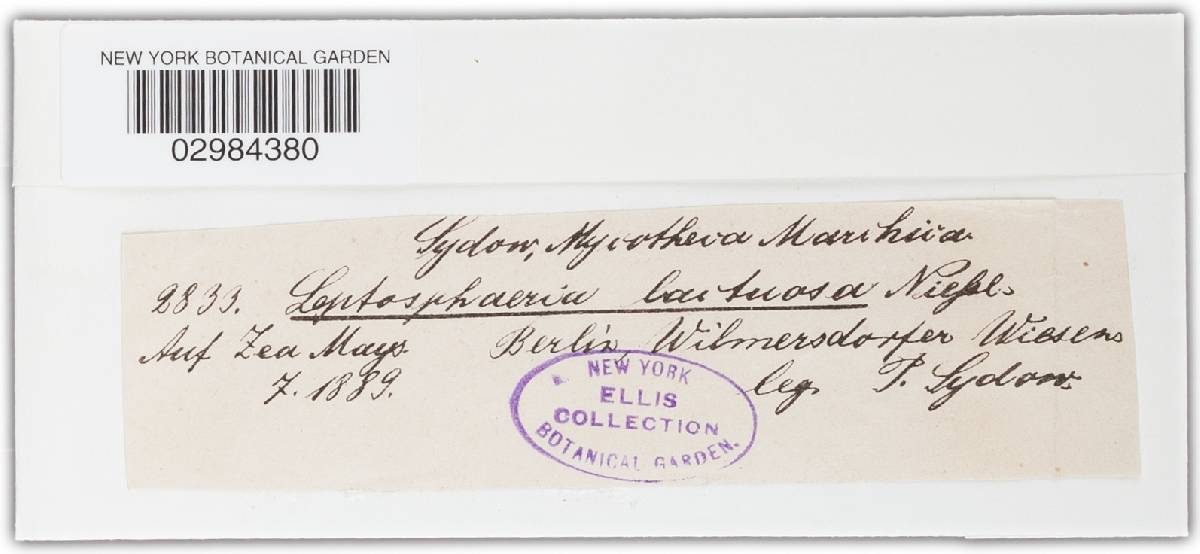 NEW YORK BOTANICAL GARDEN
02984380
Sydow, Mycotheca Marchica
2833. Leptosphaeria luctuosa Niessl.
Auf Zea Mays. Berlin, Wilmersdorfer Wiesen
7. 1889. leg. P. Sydow.
NEW YORK
ELLIS
COLLECTION
BOTANICAL GARDEN.